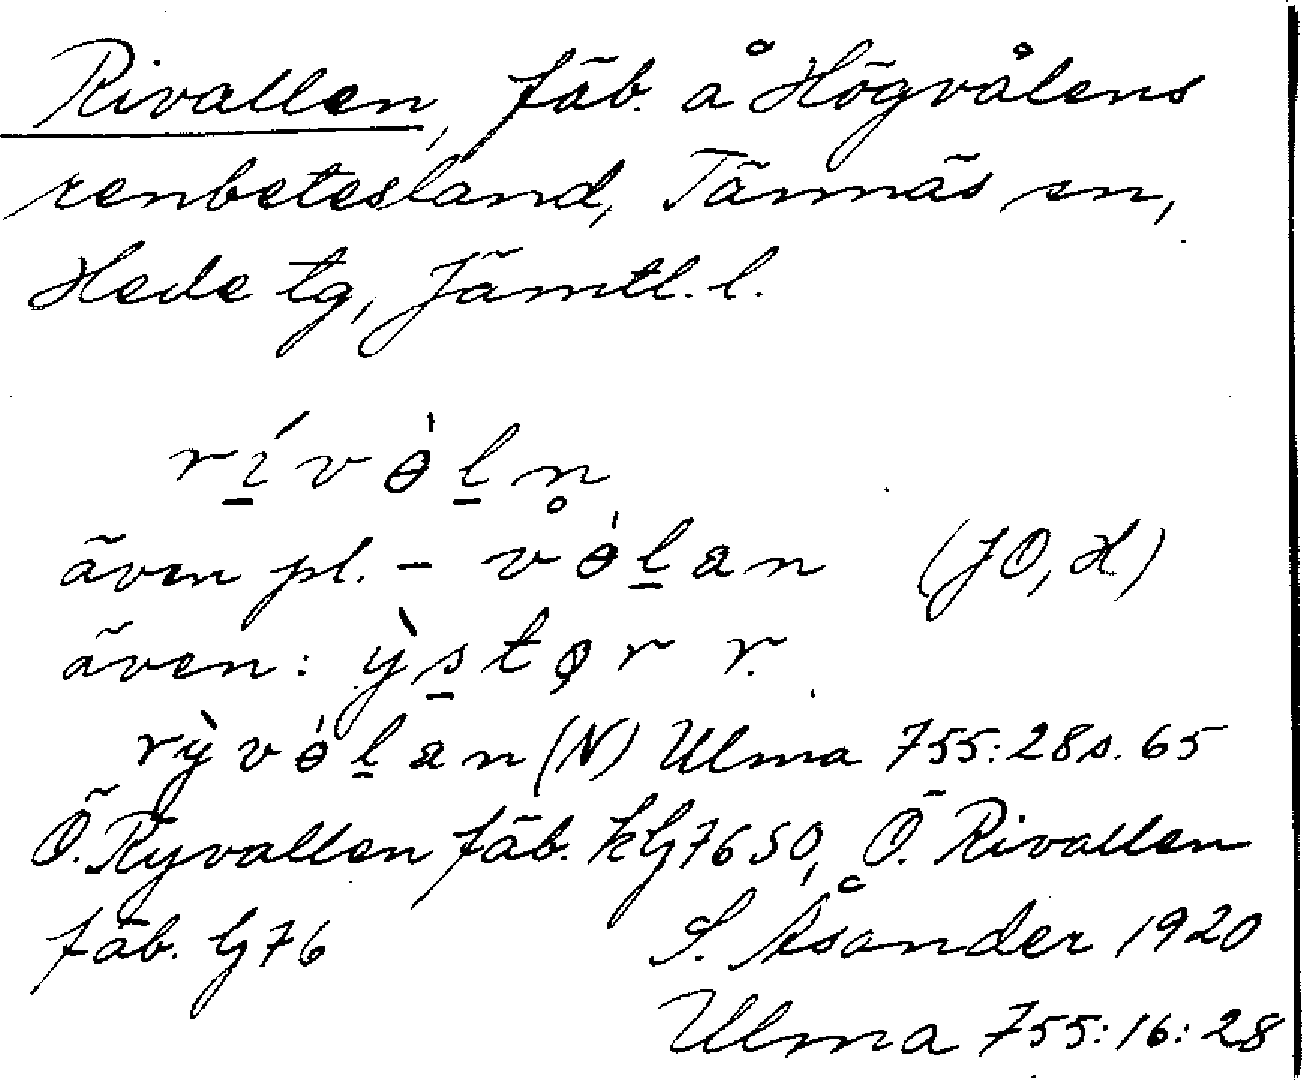 Rivallen, fäb. å Högvålens
renbetesland, Tännäs sn,
Hede tg, Jämtl. l.
rı̱́vɵ̀ḻn̥
även pl. – vɵ̀ḻan (JO, H)
även: ỳs̱tǫr r.
rỳvɵ̀ḻan (N) Ulma 755:28 s. 65
Ö. Ryvallen fäb. kG7650, Ö. Rivallen
fäb. G76 S. Åsander 1920
Ulma 755:16:28